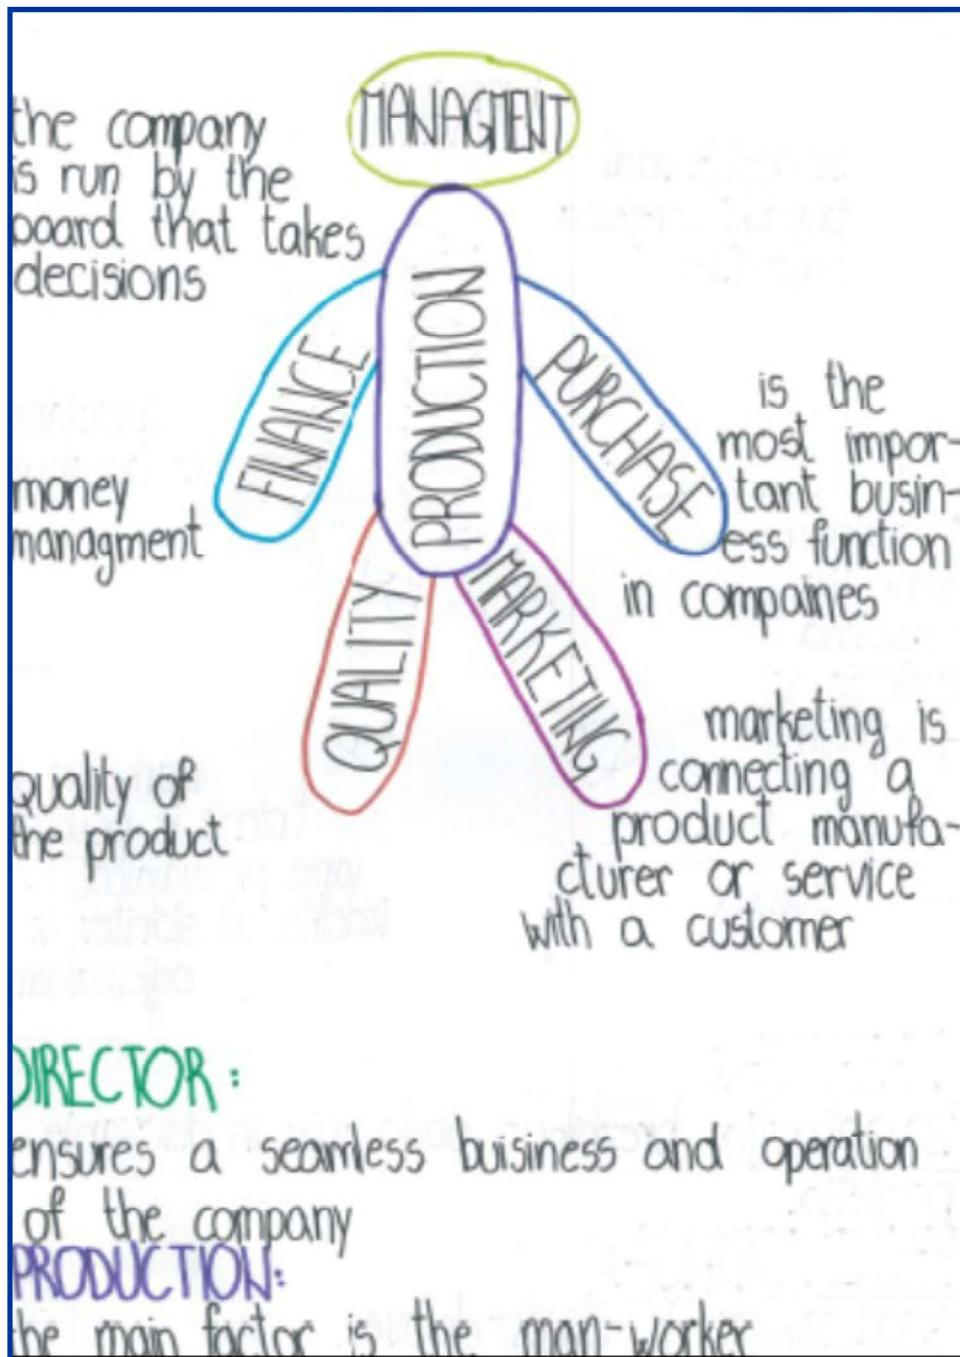 MANAGMENT
the company
is run by the
board that takes
decisions
PRODUCTION
FINANCE
PURCHASE
is the
most impor-
tant busin-
ess function
in compaines
money
managment
QUALITY
MARKETING
marketing is
connecting a
product manufa-
cturer or service
with a customer
quality of
the product
DIRECTOR:
ensures a seamless buisiness and operation
of the company
PRODUCTION:
the main factor is the man-worker